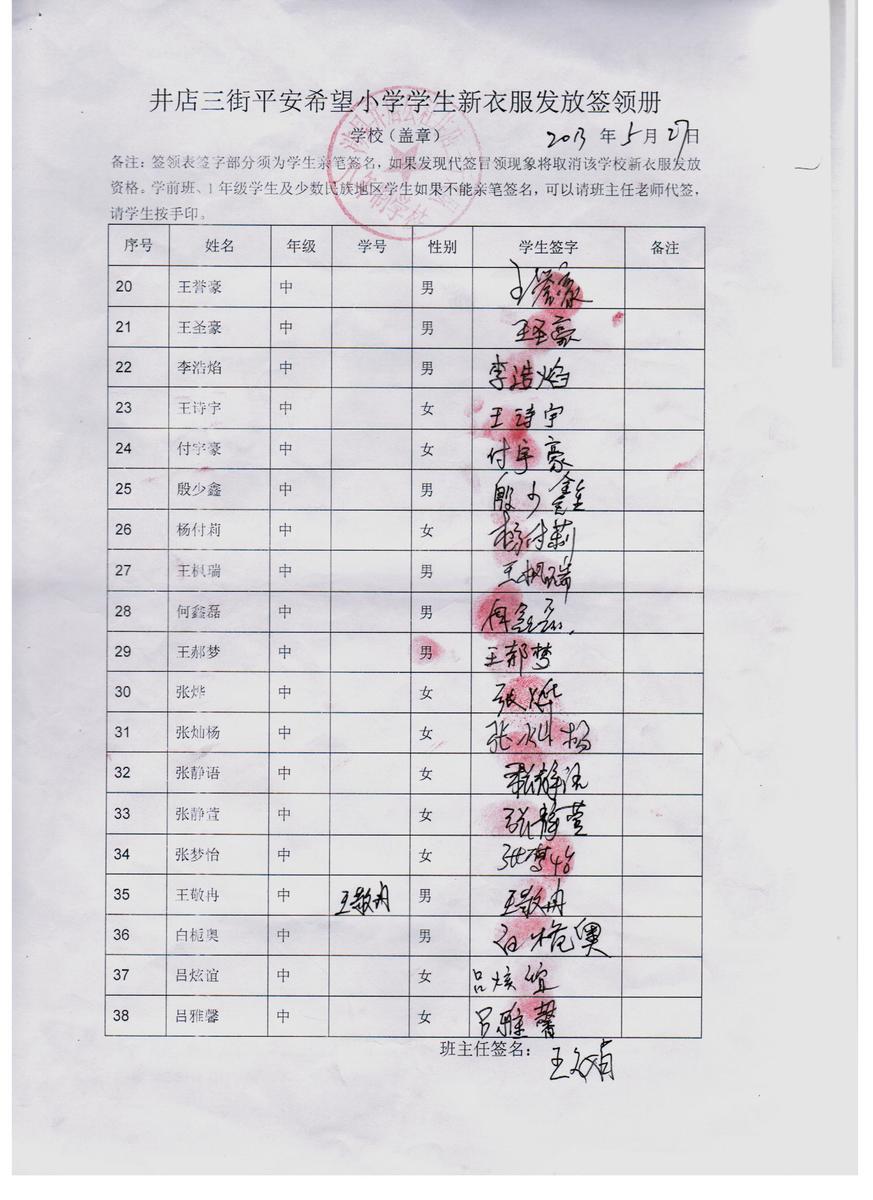 井店三街平安希望小学学生新衣服发放签领册
学校（盖章） 2013 年 5 月 27 日
备注：签领表签字部分须为学生亲笔签名，如果发现代签冒领现象将取消该学校新衣服发放
资格。学前班、1 年级学生及少数民族地区学生如果不能亲笔签名，可以请班主任老师代签，
请学生按手印。
序号 姓名 年级 学号 性别 学生签字 备注
20 王誉豪 中 男 王誉豪
21 王圣豪 中 男 王圣豪
22 李浩焰 中 男 李浩焰
23 王诗宇 中 女 王诗宇
24 付宇豪 中 女 付宇豪
25 殷少鑫 中 男 殷少鑫
26 杨付莉 中 女 杨付莉
27 王枫瑞 中 男 王枫瑞
28 何鑫磊 中 男 何鑫磊
29 王郝梦 中 男 王郝梦
30 张烨 中 女 张烨
31 张灿杨 中 女 张灿杨
32 张静语 中 女 张静语
33 张静萱 中 女 张静萱
34 张梦怡 中 女 张梦怡
35 王敬冉 中 王敬冉 男 王敬冉
36 白栀奥 中 男 白栀奥
37 吕炫谊 中 女 吕炫谊
38 吕雅馨 中 女 吕雅馨
班主任签名：